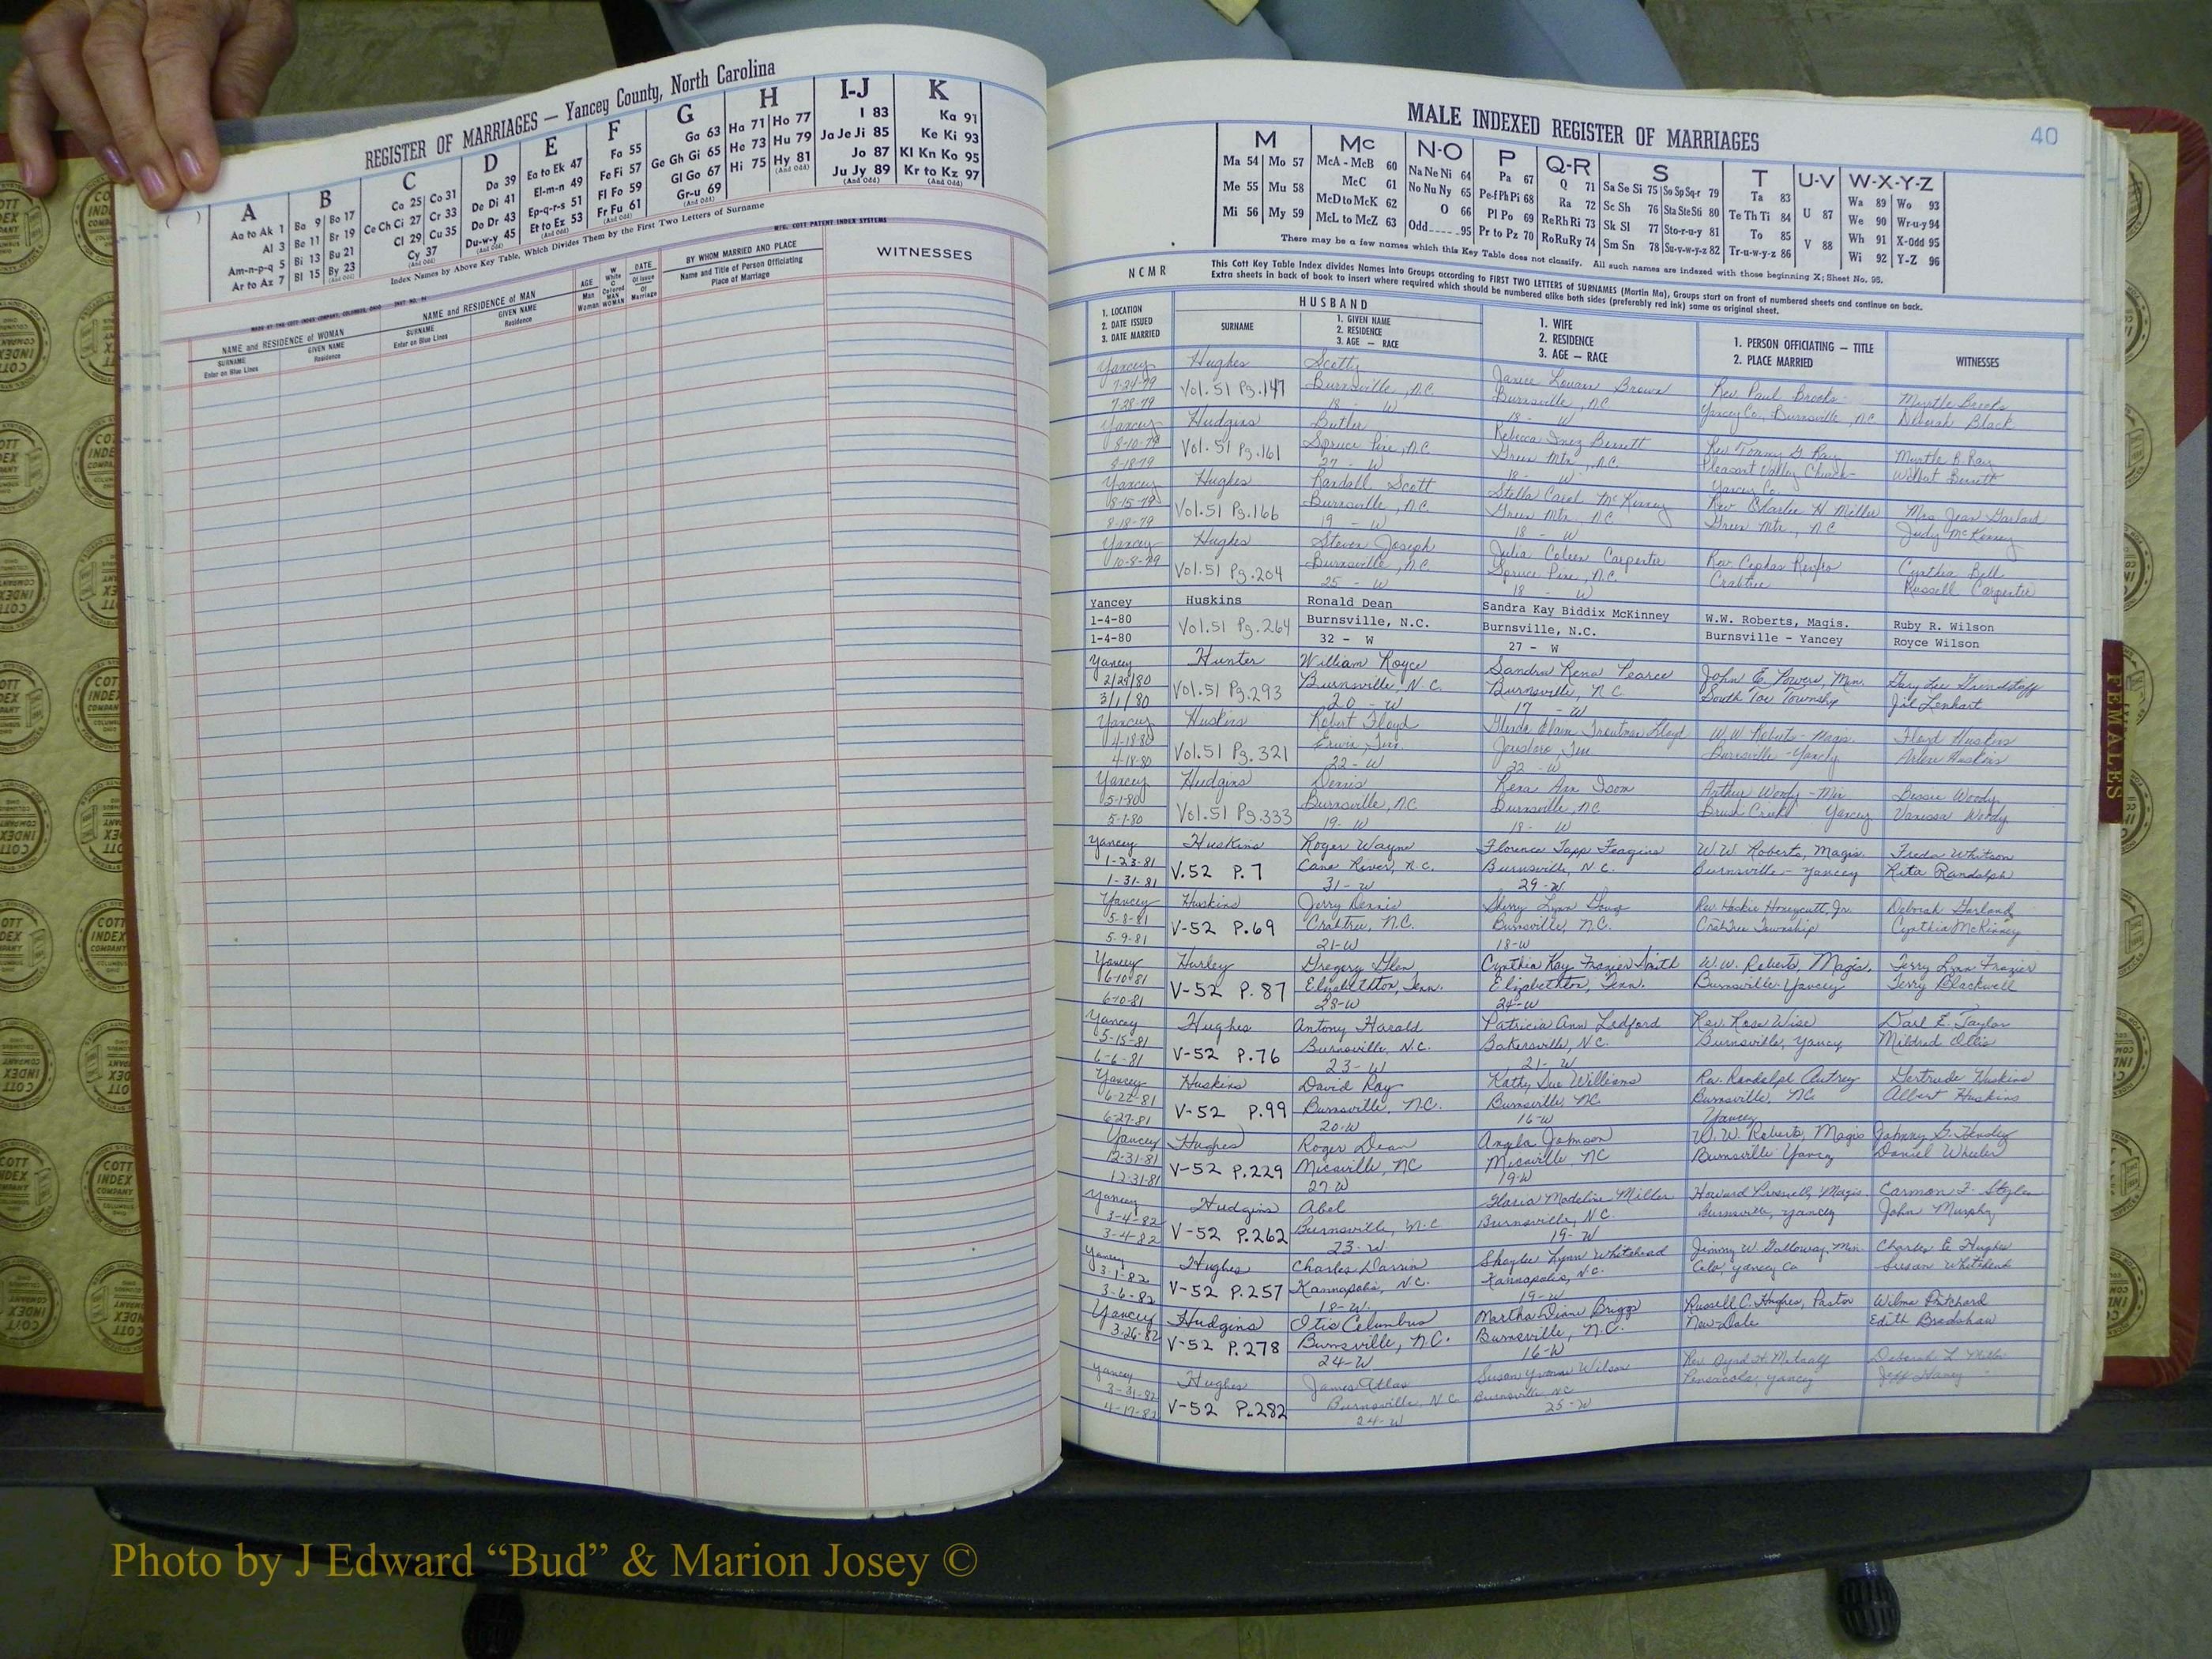 REGISTER OF MARRIAGES — Yancey County, North Carolina
A
Aa to Ak 1
Al 3
Am-n-p-q 5
Ar to Az 7
B
Ba 9 Bo 17
Be 11 Br 19
Bi 13 Bu 21
Bl 15 By 23
(And Odd)
C
Ca 25 Co 31
Ce Ch Ci 27 Cr 33
Cl 29 Cu 35
Cy 37
(And Odd)
D
Da 39
De Di 41
Do Dr 43
Du-w-y 45
(And Odd)
E
Ea to Ek 47
El-m-n 49
Ep-q-r-s 51
Et to Ez 53
F
Fa 55
Fe Fi 57
Fl Fo 59
Fr Fu 61
(And Odd)
G
Ga 63
Ge Gh Gi 65
Gl Go 67
Gr-u 69
(And Odd)
H
Ha 71 Ho 77
He 73 Hu 79
Hi 75 Hy 81
(And Odd)
I-J
I 83
Ja Je Ji 85
Jo 87
Ju Jy 89
(And Odd)
K
Ka 91
Ke Ki 93
Kl Kn Ko 95
Kr to Kz 97
(And Odd)
Index Names by Above Key Table, Which Divides Them by the First Two Letters of Surname
MFG. COTT PATENT INDEX SYSTEMS
MADE BY THE COTT INDEX COMPANY, COLUMBUS, OHIO
NAME and RESIDENCE of WOMAN
SURNAME
Enter on Blue Lines
GIVEN NAME
Residence
NAME and RESIDENCE of MAN
SURNAME
Enter on Blue Lines
GIVEN NAME
Residence
AGE
Man
Woman
W
White
C
Colored
MAN
WOMAN
DATE
Of Issue
Of
Marriage
BY WHOM MARRIED AND PLACE
Name and Title of Person Officiating
Place of Marriage
WITNESSES
MALE INDEXED REGISTER OF MARRIAGES
40
M
Ma 54 Mo 57
Me 55 Mu 58
Mi 56 My 59
Mc
McA - McB 60
McC 61
McD to McK 62
McL to McZ 63
N-O
Na Ne Ni 64
No Nu Ny 65
O 66
Odd 95
P
Pa 67
Pe-f Ph Pi 68
Pl Po 69
Pr to Pz 70
Q-R
Q 71
Ra 72
Re Rh Ri 73
Ro Ru Ry 74
S
Sa Se Si 75 So Sp Sq-r 79
Sc Sh 76 Sta Ste Sti 80
Sk Sl 77 Sto-r-u-y 81
Sm Sn 78 Su-v-w-y-z 82
T
Ta 83
Te Th Ti 84
To 85
Tr-u-w-y-z 86
U-V
U 87
V 88
W-X-Y-Z
Wa 89 Wo 93
We 90 Wr-u-y 94
Wh 91 X-Odd 95
Wi 92 Y-Z 96
There may be a few names which this Key Table does not classify. All such names are indexed with those beginning X; Sheet No. 95.
NCMR
This Cott Key Table Index divides Names into Groups according to FIRST TWO LETTERS of SURNAMES (Martin Ma), Groups start on front of numbered sheets and continue on back.
Extra sheets in back of book to insert where required which should be numbered alike both sides (preferably red ink) same as original sheet.
1. LOCATION
2. DATE ISSUED
3. DATE MARRIED
HUSBAND
SURNAME
1. GIVEN NAME
2. RESIDENCE
3. AGE — RACE
1. WIFE
2. RESIDENCE
3. AGE — RACE
1. PERSON OFFICIATING — TITLE
2. PLACE MARRIED
WITNESSES
Yancey Hughes Scotty Janice Louann Brown Rev. Paul Brooks Myrtle Brooks
7-24-79 Vol. 51 Pg. 147 Burnsville, N.C. Burnsville, NC Yancey Co., Burnsville, N.C. Deborah Black
7-28-79 18 - W 18 - W
Yancey Hudgins Butler Rebecca Inez Bennett Rev Tommy G Ray Myrtle B Ray
8-10-79 Vol. 51 Pg. 161 Spruce Pine, N.C. Green Mtn., N.C. Pleasant Valley Church Wilbert Bennett
8-18-79 27 - W 18 - W Yancey Co.
Yancey Hughes Randall Scott Stella Carol McKinney Rev Charlie H Miller Mrs Jean Garland
8-15-79 Vol. 51 Pg. 166 Burnsville, N.C. Green Mtn, N.C. Green Mtn., N.C Judy McKinney
8-18-79 19 - W 18 - W
Yancey Hughes Steven Joseph Julia Coleen Carpenter Rev Cephas Renfro Cynthia Bell
10-8-79 Vol. 51 Pg. 204 Burnsville, N.C. Spruce Pine, N.C Crabtree Russell Carpenter
25 - W 18 - W
Yancey Huskins Ronald Dean Sandra Kay Biddix McKinney W.W. Roberts, Magis. Ruby R. Wilson
1-4-80 Vol. 51 Pg. 264 Burnsville, N.C. Burnsville, N.C. Burnsville - Yancey Royce Wilson
1-4-80 32 - W 27 - W
Yancey Hunter William Royce Sandra Rena Pearce John E. Powers, Min. Gary Lee Grindstaff
2/29/80 Vol. 51 Pg. 293 Burnsville, N.C. Burnsville, N.C. South Toe Township Jil Lenhart
3/1/80 20 - W 17 - W
Yancey Huskins Robert Floyd Troutman Lloyd W.W. Roberts - Magis. Floyd Huskins
4-18-80 Vol. 51 Pg. 321 Erwin, Tenn. Jonesboro, Tenn Burnsville - Yancey Arlene Huskins
4-18-80 22 - W 22 - W
Yancey Hudgins Dennis Rena Ann Ison Arthur Woody - Min Bessie Woody
5-1-80 Vol. 51 Pg. 333 Burnsville, NC Burnsville, NC Brush Creek Yancey Vanessa Woody
5-1-80 19 - W 18 - W
Yancey Huskins Roger Wayne Florence Tapp Feagins W.W. Roberts, Magis. Freda Whitson
1-23-81 V. 52 P. 7 Cane River, N.C. Burnsville, N.C. Burnsville - Yancey Rita Randolph
1-31-81 31 - W 29 - W
Yancey Huskins Jerry Dennis Sherry Lynn Rev. Hoskie Honeycutt, Jr. Deborah Garland
5-8-81 V-52 P. 69 Crabtree, N.C. Burnsville, N.C. Crabtree Township Cynthia McKinney
5-9-81 21-W 18-W
Yancey Hurley Gregory Glen Cynthia Kay Frazier Smith W.W. Roberts, Magis. Terry Lynn Frazier
6-10-81 V-52 P. 87 Elizabethton, Tenn. Elizabethton, Tenn. Burnsville-Yancey Terry Blackwell
6-10-81 28-W 24-W
Yancey Hughes Antony Harold Patricia Ann Ledford Rev. Rose Wise Darl E. Taylor
5-15-81 V-52 P. 76 Burnsville, N.C. Bakersville, N.C. Burnsville, Yancey Mildred Ollis
6-6-81 23-W 21-W
Yancey Huskins David Ray Kathy Sue Williams Rev. Randolph Autrey Gertrude Huskins
6-22-81 V-52 P. 99 Burnsville, N.C. Burnsville, NC Burnsville, NC Albert Huskins
6-27-81 20-W 16-W Yancey
Yancey Hughes Roger Dean Angela Johnson W.W. Roberts, Magis Johnny G. Hensley
12-31-81 V-52 P. 229 Micaville, NC Micaville, NC Burnsville Yancey Daniel Wheeler
12-31-81 27 W 19-W
Yancey Hudgins Abel Gloria Madeline Miller Howard Presnell, Magis. Carmon F.
3-4-82 V-52 P. 262 Burnsville, N.C Burnsville, N.C. Burnsville, Yancey John Murphy
3-4-82 23-W 19-W
Yancey Hughes Charles Darrin Shaylee Lynn Whitehead Jimmy W. Galloway, Min. Charles E Hughes
3-1-82 V-52 P. 257 Kannapolis, N.C. Kannapolis, N.C. Celo, Yancey Co Susan Whitehead
3-6-82 18-W 19-W
Yancey Hudgins Otis Columbus Martha Diane Briggs Russell C. Hughes, Pastor Wilma Pritchard
3-26-82 V-52 P. 278 Burnsville, N.C. Burnsville, N.C. New-Dale Edith Bradshaw
24-W 16-W
Yancey Hughes James Atlas Susan Yvonne Wilson Rev. Byrd H. Metcalf Deborah L Miller
3-31-82 V-52 P. 282 Burnsville, N.C Burnsville NC Pensacola, Yancey Jeff Haney
4-17-82 24-W 25-W
FEMALES
COTT
INDEX
COMPANY
COLUMBUS
OHIO
Photo by J Edward “Bud” & Marion Josey ©